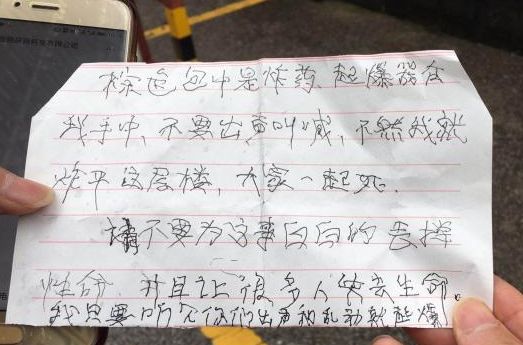 棕色包中是炸药,起爆器在
我手中,不要出声叫喊,不然我就
炸平这层楼,大家一起死.
请不要为这事白白的丢掉
性命 并且让很多人失去生命.
我只要听见你们出声和乱动就起爆